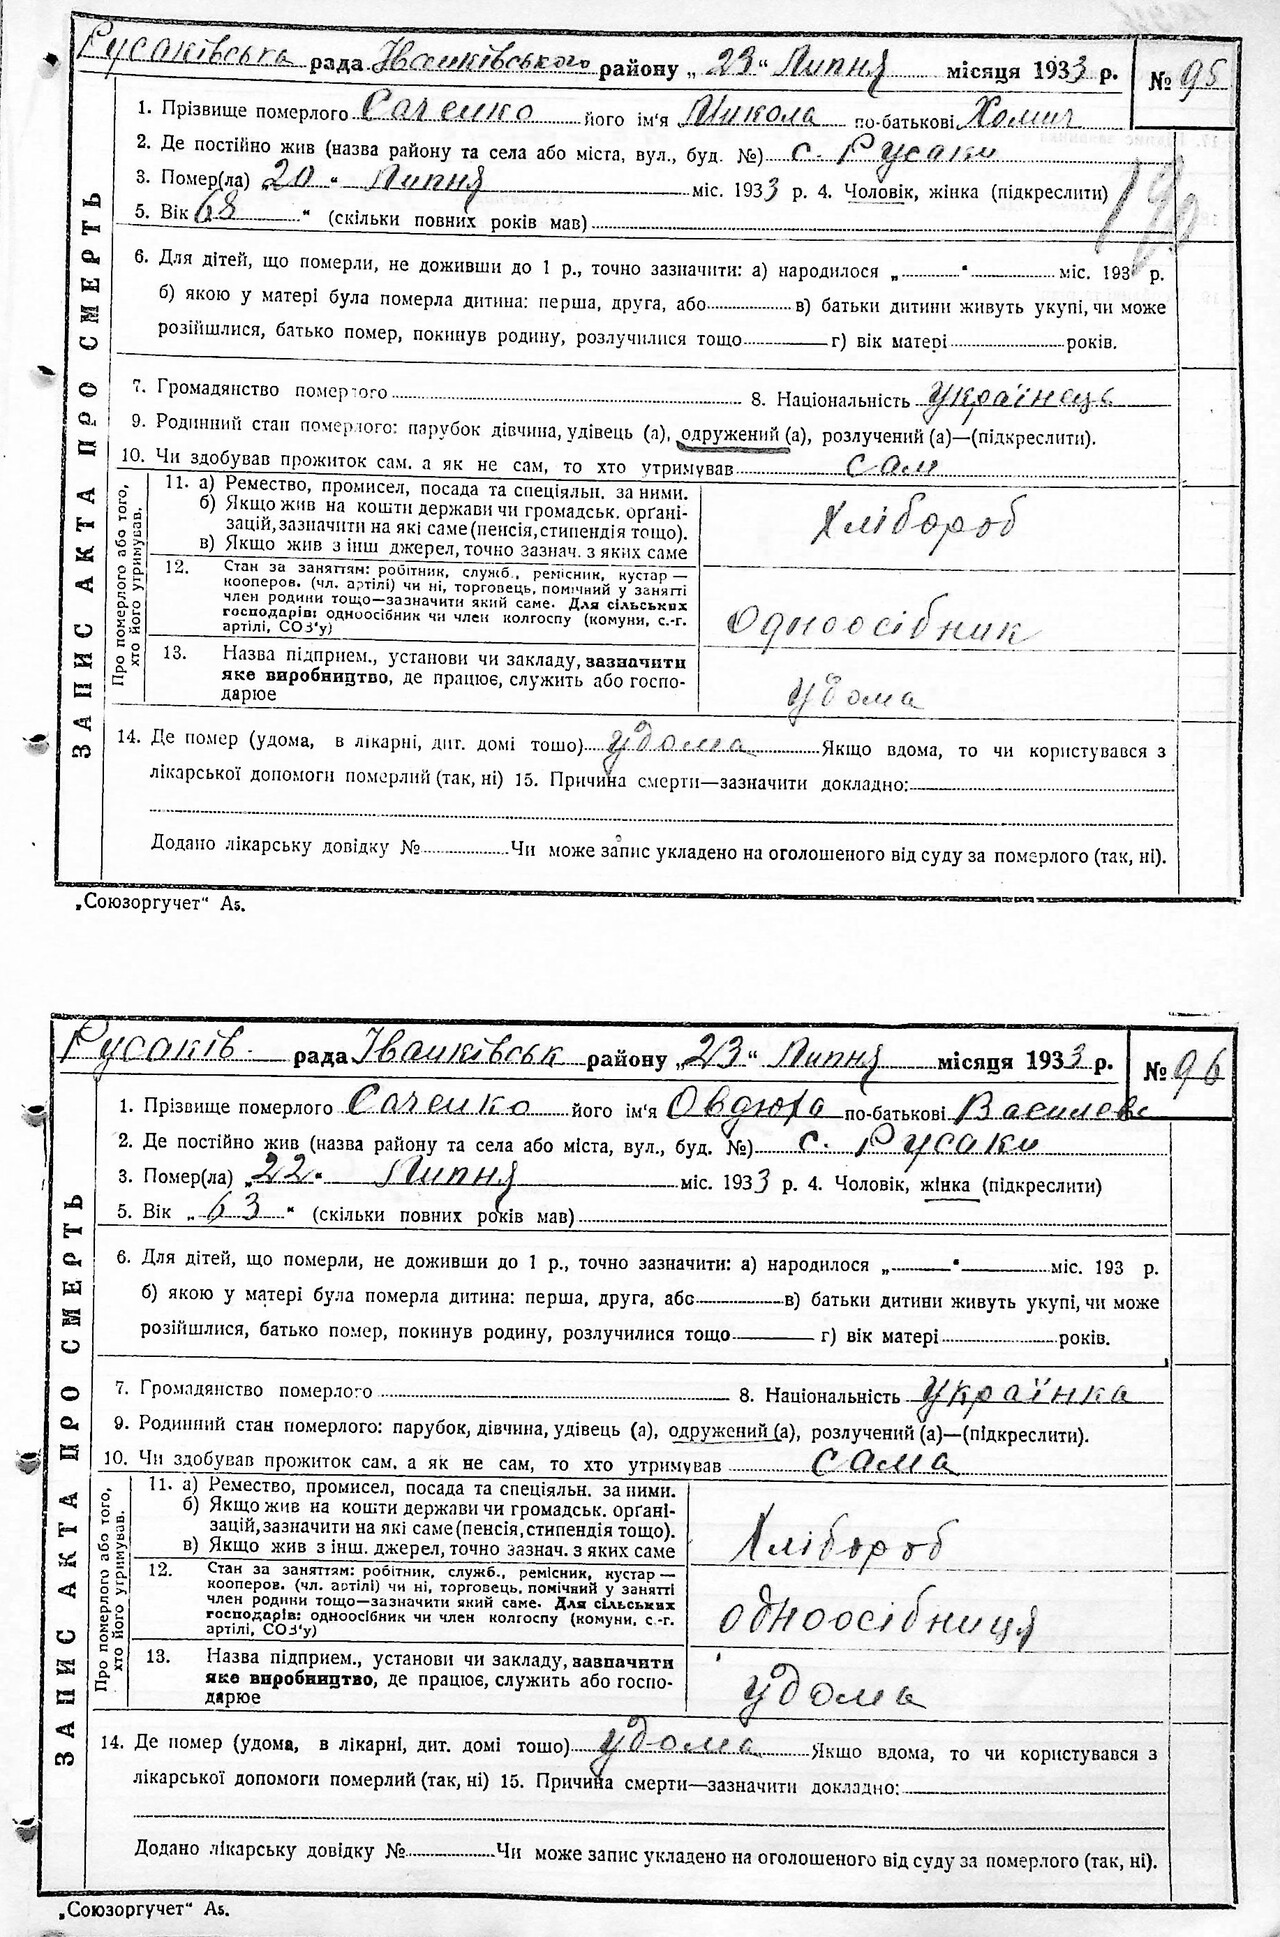 Русаківська рада Іванківського району „23“ Липня місяця 1933 р. № 95
1. Прізвище померлого Саченко його ім'я Микола по-батькові Хомич
2. Де постійно жив (назва району та села або міста, вул., буд. №) с. Русаки
3. Помер(ла) 20 “ Липня міс. 1933 р. 4. Чоловік, жінка (підкреслити)
5. Вік 68 “ (скільки повних років мав)
190
6. Для дітей, що померли, не доживши до 1 р., точно зазначити: а) народилося „ “ міс. 193 р.
б) якою у матері була померла дитина: перша, друга, або в) батьки дитини живуть укупі, чи може
розійшлися, батько помер, покинув родину, розлучилися тощо г) вік матері років.
7. Громадянство померлого 8. Національність українець
9. Родинний стан померлого: парубок дівчина, удівець (а), одружений (а), розлучений (а)—(підкреслити).
10. Чи здобував прожиток сам, а як не сам, то хто утримував сам
Про померлого або того, хто його утримував.
11. а) Ремество, промисел, посада та спеціяльн. за ними.
б) Якщо жив на кошти держави чи громадськ. орґані-
зацій, зазначити на які саме (пенсія, стипендія тощо).
в) Якщо жив з інш джерел, точно зазнач. з яких саме
Хлібороб
12. Стан за заняттям: робітник, служб., ремісник, кустар—
кооперов. (чл. артілі) чи ні, торговець, помічний у занятті
член родини тощо—зазначити який саме. Для сільських
господарів: одноосібник чи член колгоспу (комуни, с.-г.
артілі, СОЗ'у)
Одноосібник
13. Назва підприєм., установи чи закладу, зазначити
яке виробництво, де працює, служить або госпо-
дарює
удома
14. Де помер (удома, в лікарні, дит. домі тощо) удома Якщо вдома, то чи користувався з
лікарської допомоги померлий (так, ні) 15. Причина смерти—зазначити докладно:
Додано лікарську довідку № Чи може запис укладено на оголошеного від суду за померлого (так, ні).
ЗАПИС АКТА ПРО СМЕРТЬ
„Союзоргучет“ А5.
Русаків. рада Іванківськ району „23“ Липня місяця 1933 р. № 96
1. Прізвище померлого Саченко його ім'я Овдюха по-батькові Василевс
2. Де постійно жив (назва району та села або міста, вул., буд. №) с. Русаки
3. Помер(ла) „22“ Липня міс. 1933 р. 4. Чоловік, жінка (підкреслити)
5. Вік „63“ (скільки повних років мав)
6. Для дітей, що померли, не доживши до 1 р., точно зазначити: а) народилося „ “ міс. 193 р.
б) якою у матері була померла дитина: перша, друга, або в) батьки дитини живуть укупі, чи може
розійшлися, батько помер, покинув родину, розлучилися тощо г) вік матері років.
7. Громадянство померлого 8. Національність українка
9. Родинний стан померлого: парубок, дівчина, удівець (а), одружений (а), розлучений (а)—(підкреслити).
10. Чи здобував прожиток сам, а як не сам, то хто утримував сама
Про померлого або того, хто його утримував.
11. а) Ремество, промисел, посада та спеціяльн. за ними.
б) Якщо жив на кошти держави чи громадськ. орґані-
зацій, зазначити на які саме (пенсія, стипендія тощо).
в) Якщо жив з інш. джерел, точно зазнач. з яких саме
Хлібороб
12. Стан за заняттям: робітник, служб., ремісник, кустар—
кооперов. (чл. артілі) чи ні, торговець, помічний у занятті
член родини тощо—зазначити який саме. Для сільських
господарів: одноосібник чи член колгоспу (комуни, с.-г.
артілі, СОЗ'у)
одноосібниця
13. Назва підприєм., установи чи закладу, зазначити
яке виробництво, де працює, служить або госпо-
дарює
удома
14. Де помер (удома, в лікарні, дит. домі тощо) удома Якщо вдома, то чи користувався з
лікарської допомоги померлий (так, ні) 15. Причина смерти—зазначити докладно:
Додано лікарську довідку № Чи може запис укладено на оголошеного від суду за померлого (так, ні).
ЗАПИС АКТА ПРО СМЕРТЬ
„Союзоргучет“ А5.